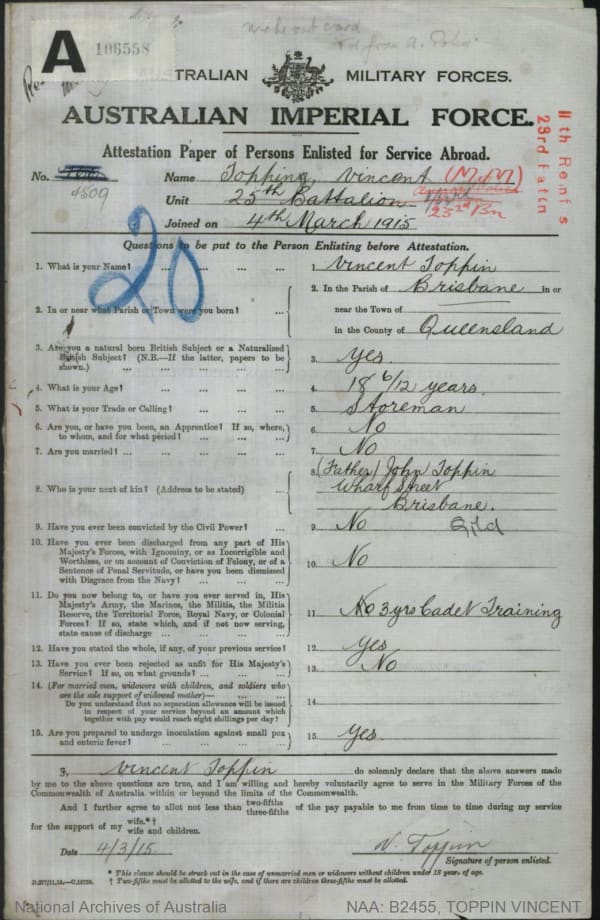 A 106558
make out card
AUSTRALIAN MILITARY FORCES.
AUSTRALIAN IMPERIAL FORCE.
11th Reinfts
23rd Battn
Attestation Paper of Persons Enlisted for Service Abroad.
No. 4509 Name Topping, Vincent
Unit 25th Battalion
23rd Bn
Joined on 4th March 1915
20
Questions to be put to the Person Enlisting before Attestation.
1. What is your Name? ... ... ... ... 1. Vincent Toppin
2. In or near what Parish or Town were you born? ... 2. In the Parish of Brisbane in or
near the Town of
in the County of Queensland
3. Are you a natural born British Subject or a Naturalized
British Subject? (N.B.—If the latter, papers to be
shown.) ... ... ... ... ... 3. Yes.
4. What is your Age? ... ... ... ... 4. 18 6/12 years.
5. What is your Trade or Calling? ... ... ... 5. Storeman
6. Are you, or have you been, an Apprentice? If so, where,
to whom, and for what period? ... ... ... 6. No
7. Are you married? ... ... ... ... ... 7. No
8. Who is your next of kin? (Address to be stated) ... 8. (Father) John Toppin
Wharf Street
Brisbane.
9. Have you ever been convicted by the Civil Power? ... 9. No Qld
10. Have you ever been discharged from any part of His
Majesty's Forces, with Ignominy, or as Incorrigible and
Worthless, or on account of Conviction of Felony, or of a
Sentence of Penal Servitude, or have you been dismissed
with Disgrace from the Navy? ... ... ... 10. No
11. Do you now belong to, or have you ever served in, His
Majesty's Army, the Marines, the Militia, the Militia
Reserve, the Territorial Force, Royal Navy, or Colonial
Forces? If so, state which, and if not now serving,
state cause of discharge ... ... ... ... 11. No 3 yrs Cadet Training
12. Have you stated the whole, if any, of your previous service? 12. Yes
13. Have you ever been rejected as unfit for His Majesty's
Service? If so, on what grounds? ... ... ... 13. No
14. (For married men, widowers with children, and soldiers who
are the sole support of widowed mother)—
Do you understand that no separation allowance will be issued
in respect of your service beyond an amount which
together with pay would reach eight shillings per day? 14.
15. Are you prepared to undergo inoculation against small pox
and enteric fever? ... ... ... ... 15. Yes.
I, Vincent Toppin do solemnly declare that the above answers made
by me to the above questions are true, and I am willing and hereby voluntarily agree to serve in the Military Forces of the
Commonwealth of Australia within or beyond the limits of the Commonwealth.
And I further agree to allot not less than two-fifths three-fifths of the pay payable to me from time to time during my service
for the support of my wife.*† wife and children.
Date 4/3/15. V. Toppin
Signature of person enlisted.
* This clause should be struck out in the case of unmarried men or widowers without children under 18 years of age.
† Two-fifths must be allotted to the wife, and if there are children three-fifths must be allotted.
National Archives of Australia NAA: B2455, TOPPIN VINCENT